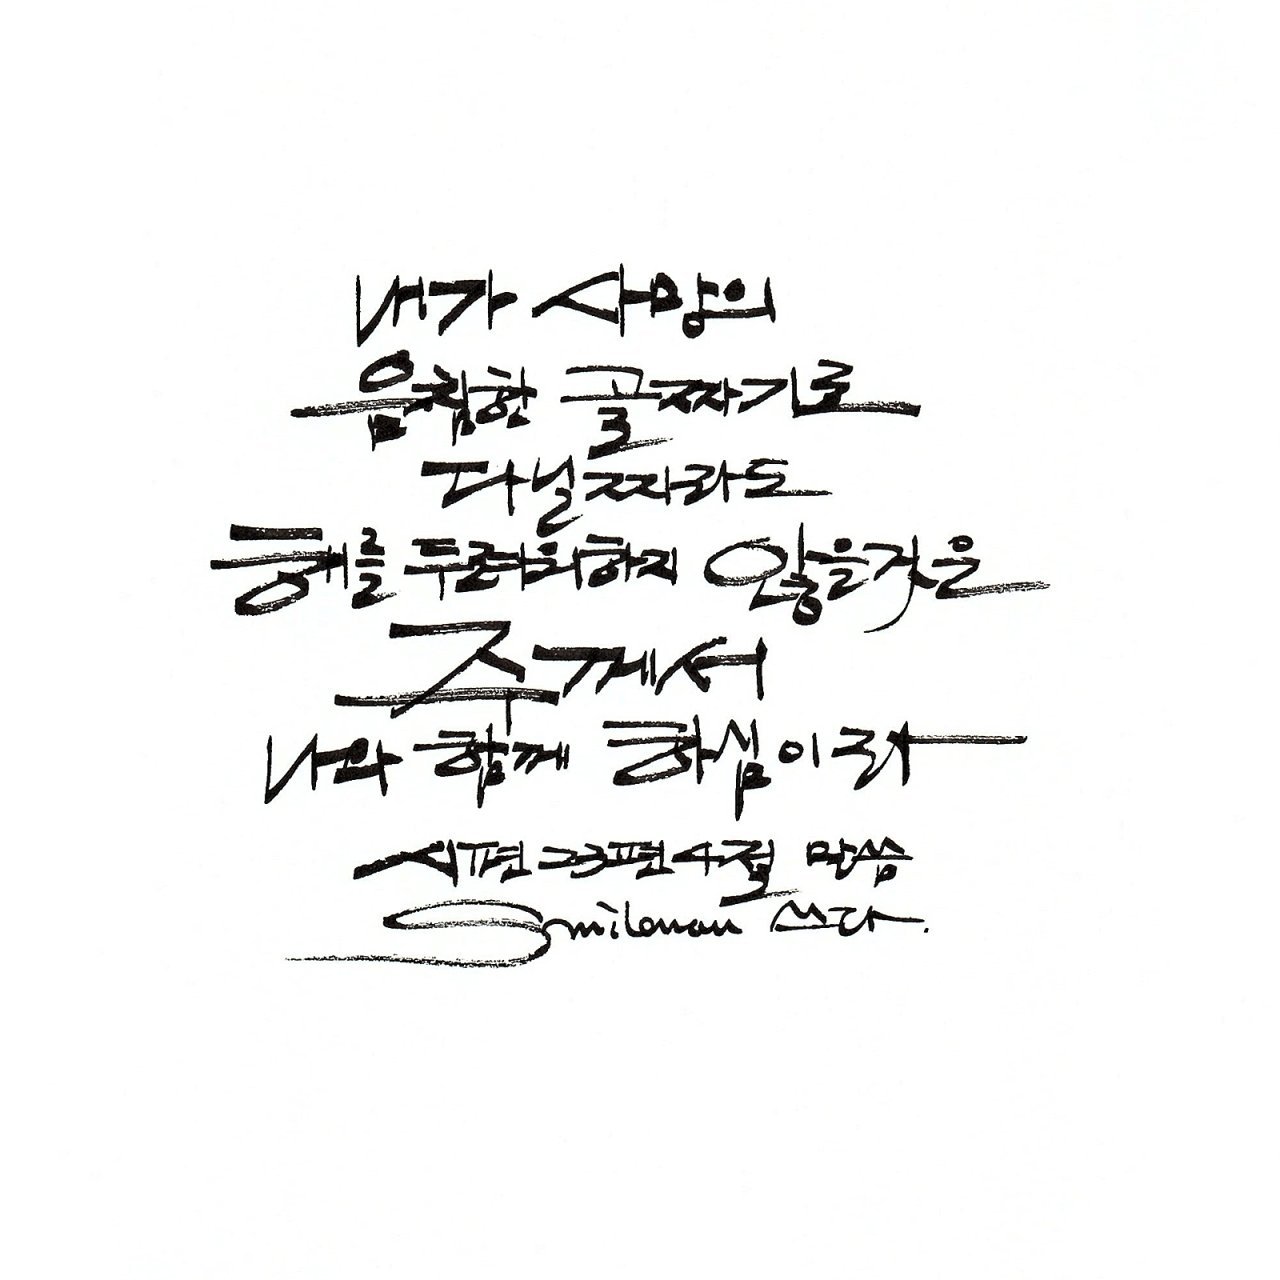 내가 사망의
음침한 골짜기로
다닐찌라도
해를 두려워하지 않을것은
주께서
나와 함께 하심이라
시편23편4절 말씀
Smileman 쓰다.